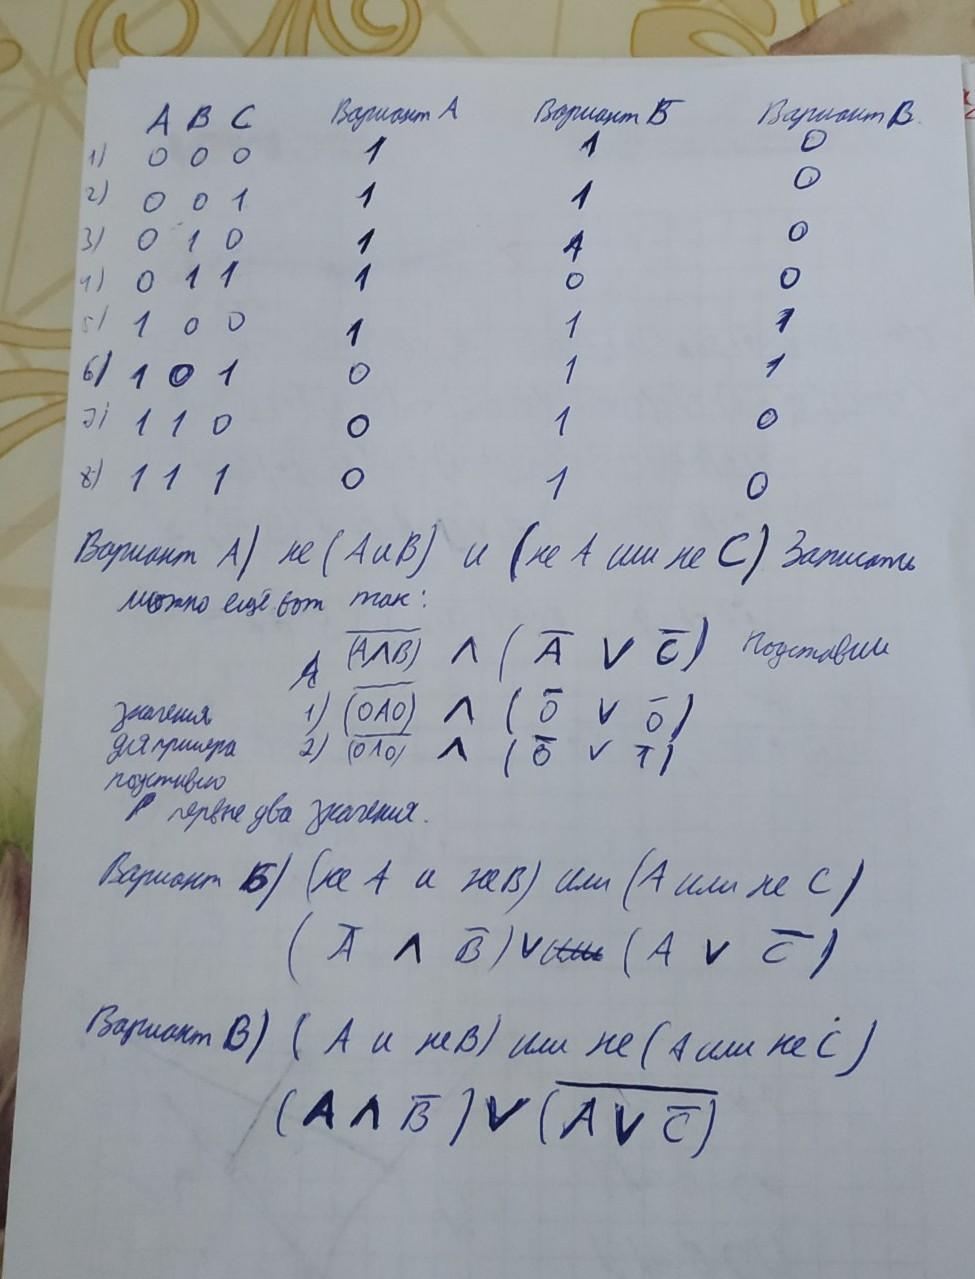 А В С Вариант А Вариант Б Вариант В.
1) 0 0 0 1 1 0
2) 0 0 1 1 1 0
3) 0 1 0 1 1 0
4) 0 1 1 1 0 0
5) 1 0 0 1 1 1
6) 1 0 1 0 1 1
7) 1 1 0 0 1 0
8) 1 1 1 0 1 0
Вариант А) не (А и В) и (не А или не С) Записать
можно ещё вот так:
А (A̅∧̅B̅) ∧ (A̅ ∨ C̅) Подставим
значения 1) (0̅∧̅0̅) ∧ (0̅ ∨ 0̅)
для примера 2) (0̅∧̅0̅) ∧ (0̅ ∨ 1̅)
подставлю
первые два значения.
Вариант Б) (не А и не В) или (А или не С)
(A̅ ∧ B̅) ∨ (A ∨ C̅)
Вариант В) (А и не В) или не (А или не С)
(A ∧ B̅) ∨ (A̅ ̅∨̅ ̅C̅̅)